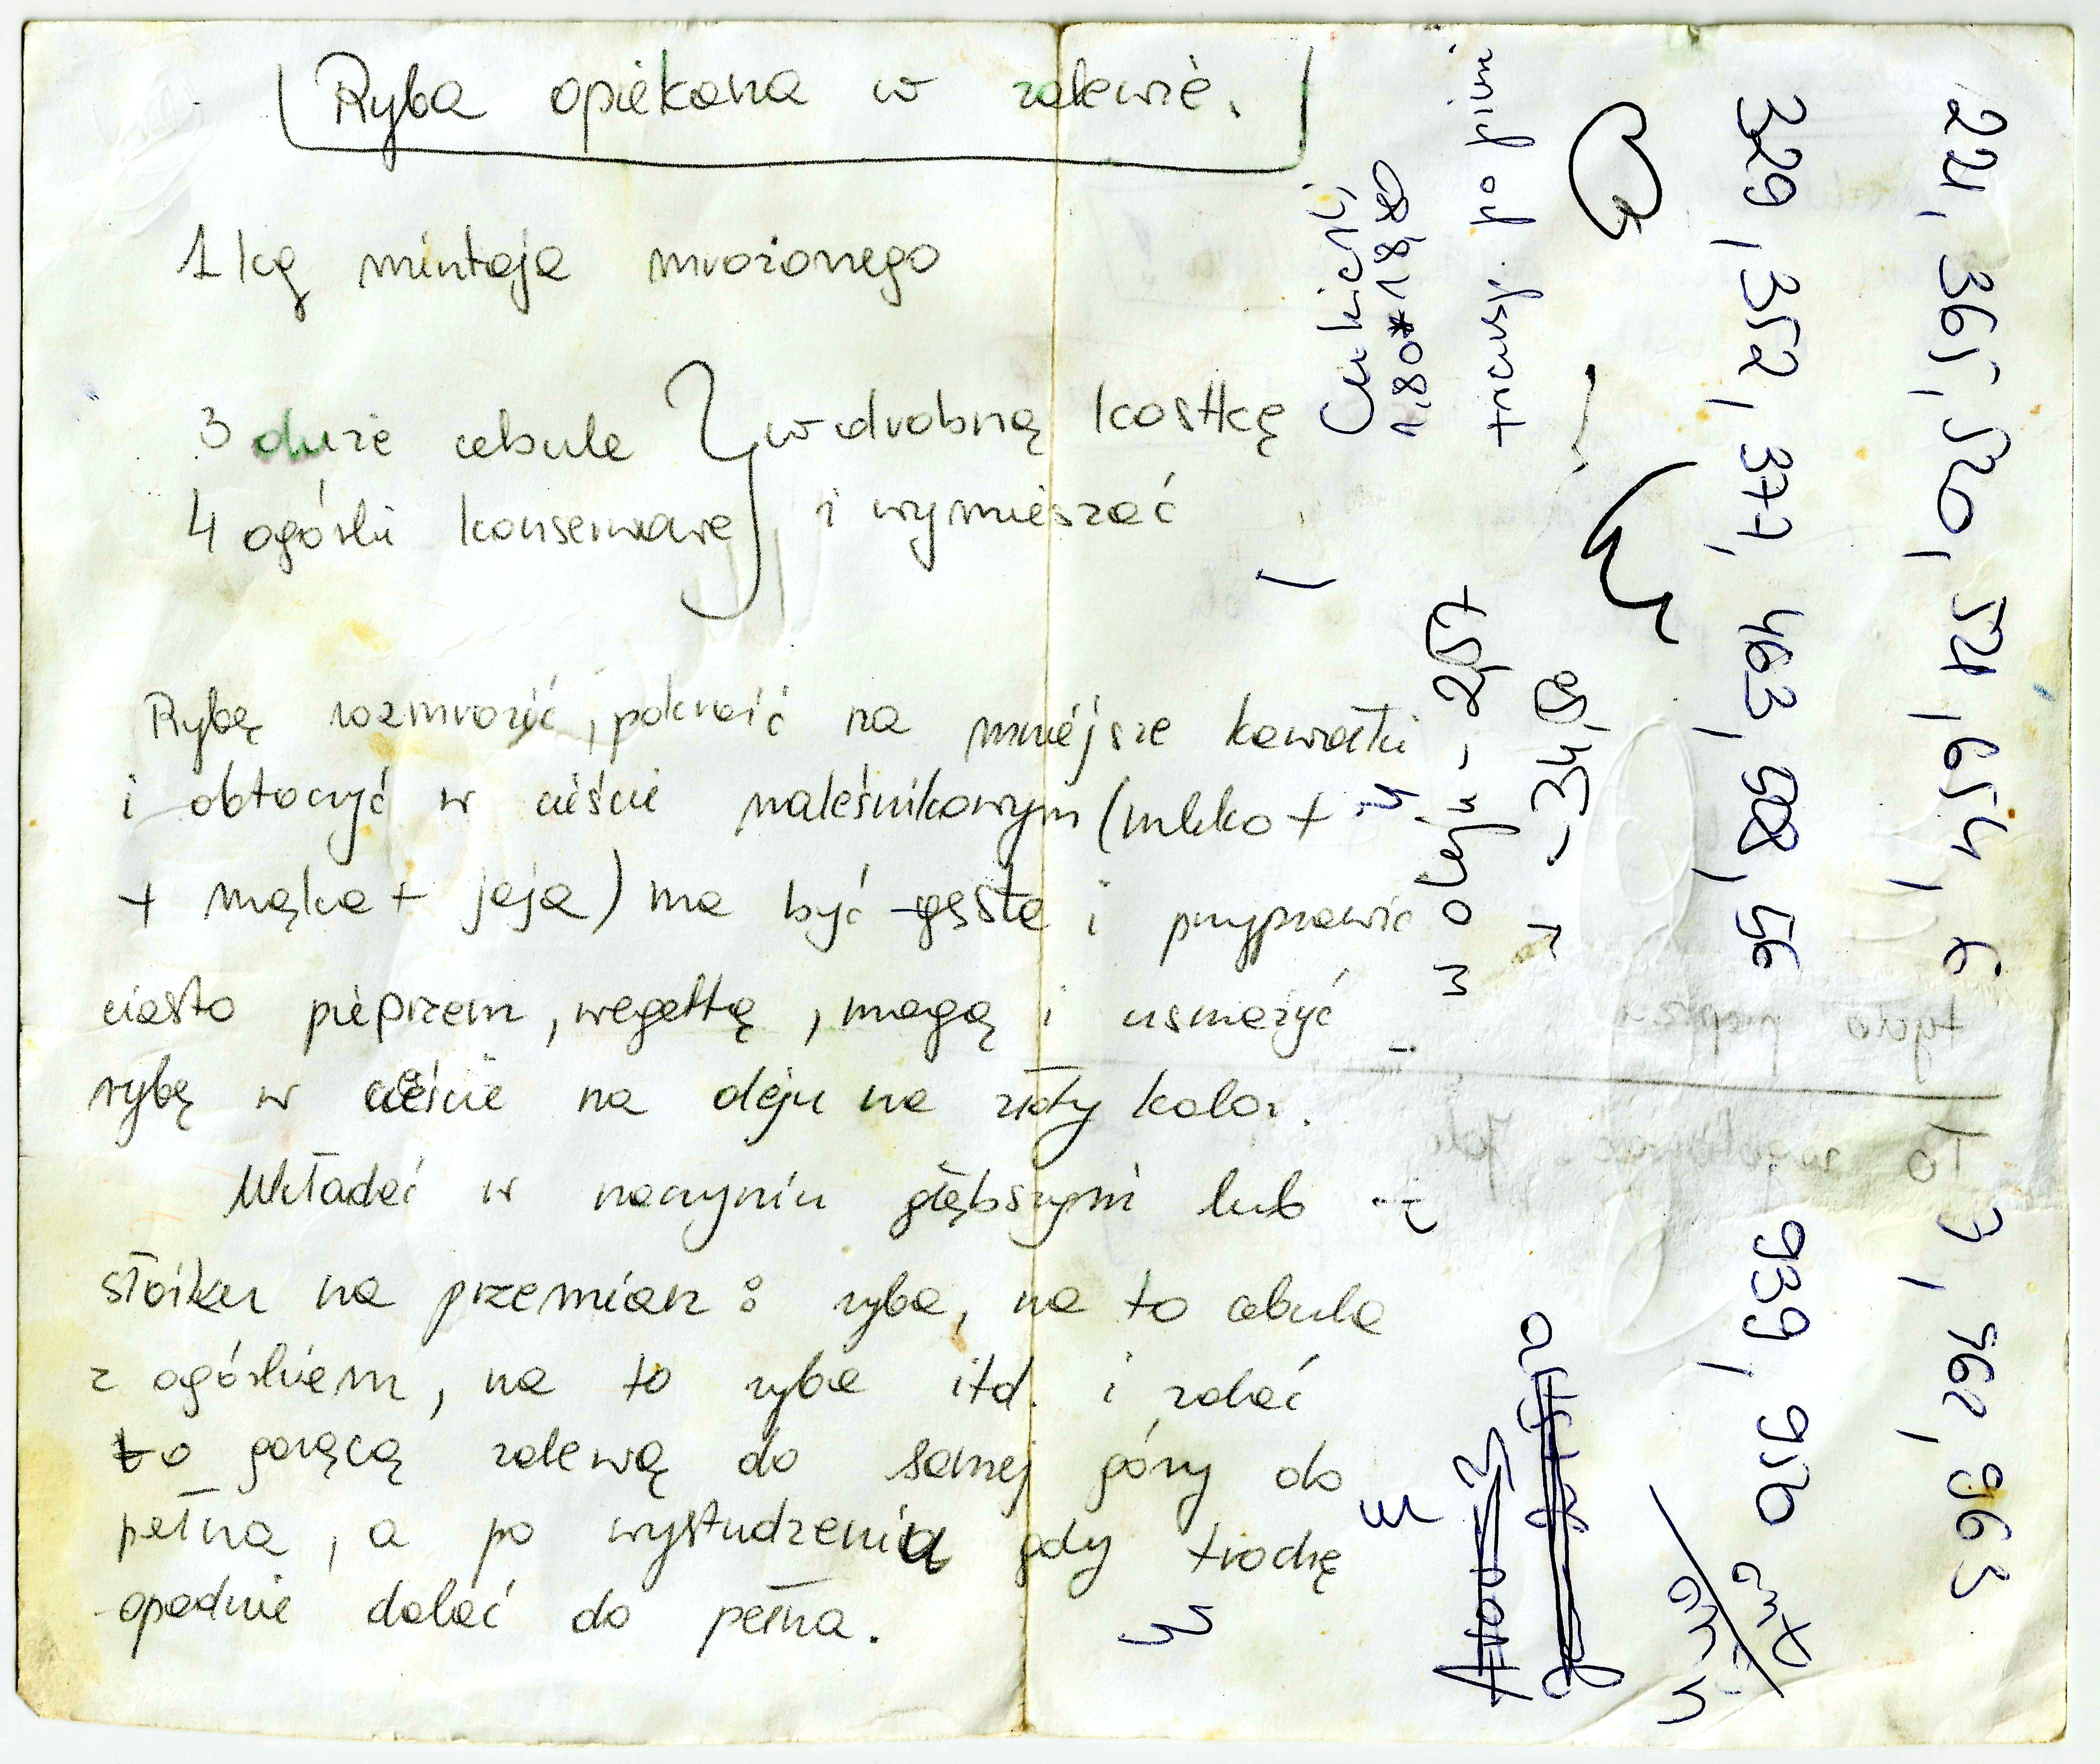 Ryba opiekana w zalewie.
1 kg mintaja mrożonego
3 duże cebule } w drobną kostkę
4 ogórki konserwowe i wymieszać
Rybę rozmrozić, pokroić na mniejsze kawałki
i obtoczyć w cieście naleśnikowym (mleko +
+ mąka + jaja) ma być gęste i przyprawić
ciasto pieprzem, wegettą, magą i usmażyć
rybę w cieście na oleju na złoty kolor.
Wkładać w naczyniu głębszym lub
słoiku na przemian: ryba, na to cebula
z ogórkiem, na to ryba itd. i zalać
to gorącą zalewą do samej góry do
pełna, a po wystudzeniu gdy trochę
opadnie dolać do pełna.
Cukierki
1,80 * 18,80
transp. po
w oleju - 2,57
329, 352, 377, 463, 508, 56
939, 950
221, 365, 520, 521, 654,
3, 962, 963